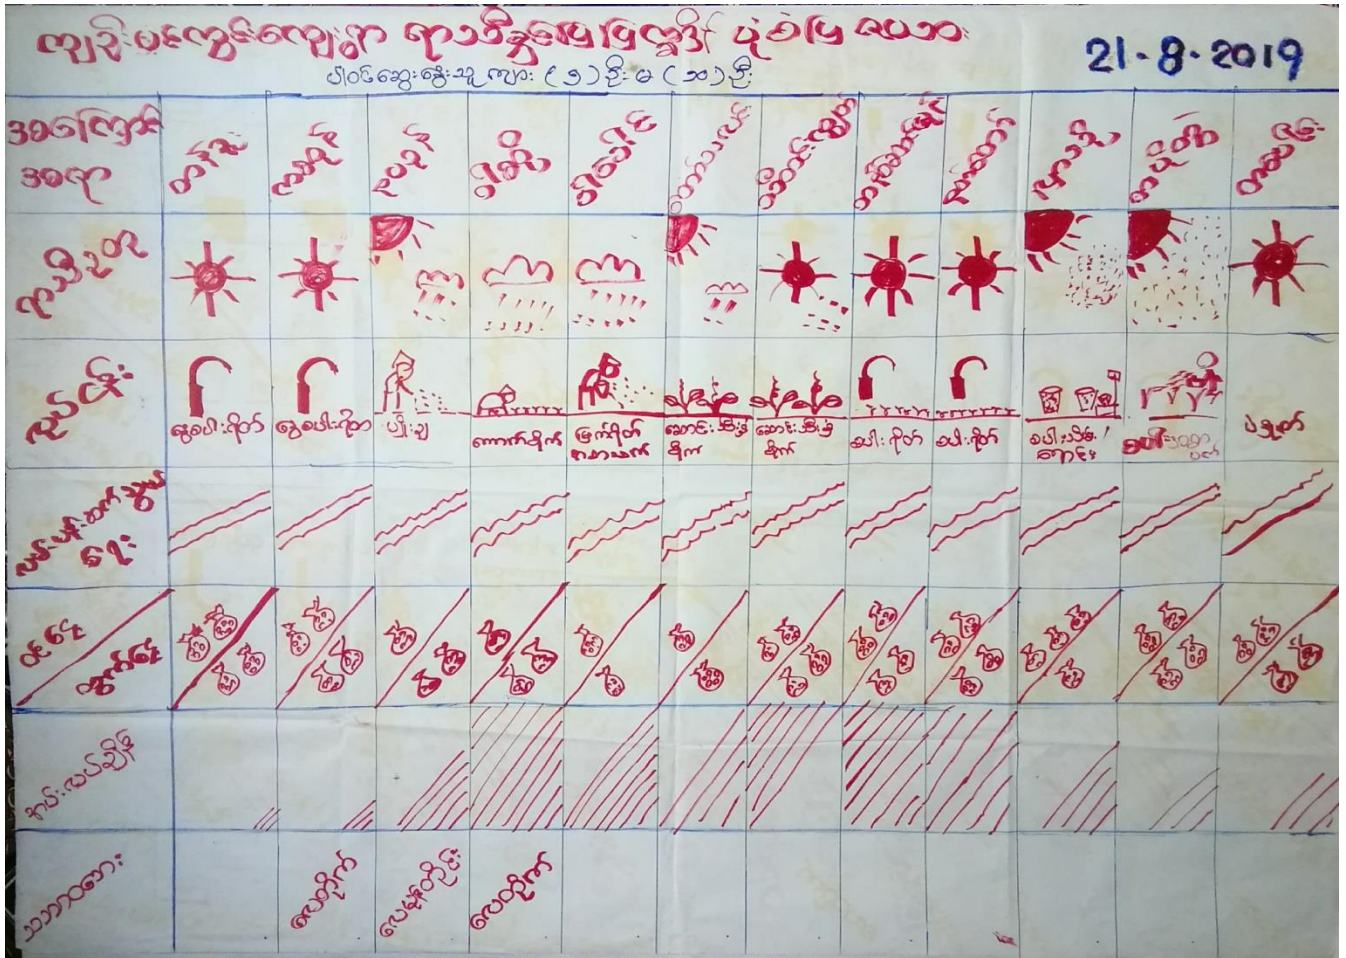 ရာသီခွင်ပြပြက္ခဒိန် ပုံစံပြ ဇယား
21-8-2019
ပါဝင်ဆွေးနွေးသူ ကျား (၅) ဦး မ (၁၁) ဦး
အကြောင်း
အရာ
တန်ခူး
ကဆုန်
နယုန်
ဝါဆို
ဝါခေါင်
တော်သလင်း
သီတင်းကျွတ်
တန်ဆောင်မုန်း
နတ်တော်
ပြာသို
တပို့တွဲ
တပေါင်း
ရာသီဥတု
လုပ်ငန်း
နွေစပါးရိတ်
နွေစပါးရိတ်
ပျိုးချ
ကောက်စိုက်
ဆောင်းသီးနှံ
စိုက်
ဆောင်းသီးနှံ
စိုက်
စပါးရိတ်
စပါးရိတ်
စပါးသိမ်း/
ရောင်း
ပဲနုတ်
လမ်းပန်းဆက်သွယ်
ရေး
ဝင်ငွေ
ထွက်ငွေ
အားလပ်ချိန်
သဘာဝဘေး
လေတိုက်
လေမုန်တိုင်း
လေတိုက်